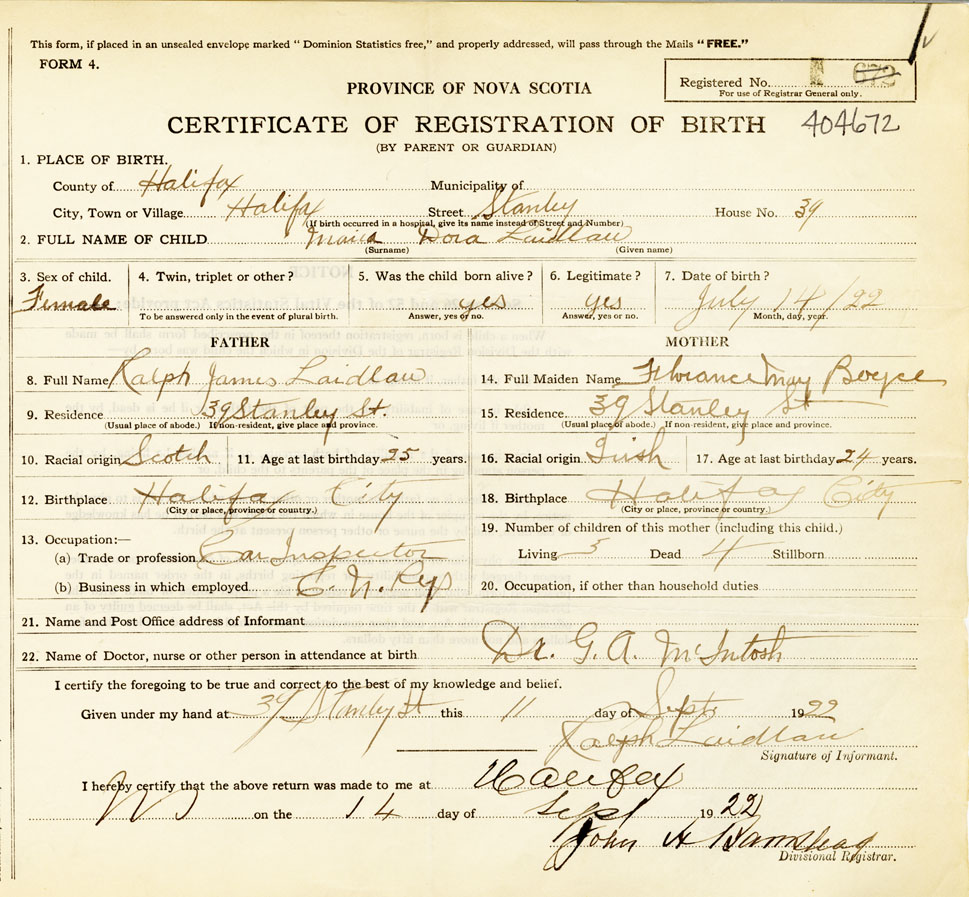 This form, if placed in an unsealed envelope marked "Dominion Statistics free," and properly addressed, will pass through the Mails "FREE."
FORM 4.
Registered No. 672
For use of Registrar General only.
PROVINCE OF NOVA SCOTIA
CERTIFICATE OF REGISTRATION OF BIRTH 404672
(BY PARENT OR GUARDIAN)
1. PLACE OF BIRTH.
County of Halifax Municipality of
City, Town or Village Halifax Street Stanley House No. 39
(If birth occurred in a hospital, give its name instead of Street and Number)
2. FULL NAME OF CHILD Dora Laidlaw
(Surname) (Given name)
3. Sex of child. 4. Twin, triplet or other? 5. Was the child born alive? 6. Legitimate? 7. Date of birth?
Female yes yes July 14/22
To be answered only in the event of plural birth. Answer, yes or no. Answer, yes or no. Month, day, year.
FATHER MOTHER
8. Full Name Ralph James Laidlaw 14. Full Maiden Name Florance May Boyce
9. Residence 39 Stanley St. 15. Residence 39 Stanley St
(Usual place of abode.) If non-resident, give place and province. (Usual place of abode.) If non-resident, give place and province.
10. Racial origin Scotch 11. Age at last birthday 25 years. 16. Racial origin Irish 17. Age at last birthday 24 years.
12. Birthplace Halifax City 18. Birthplace Halifax City
(City or place, province or country.) (City or place, province or country.)
13. Occupation:— 19. Number of children of this mother (including this child.)
(a) Trade or profession Car Inspector Living Dead 4 Stillborn
(b) Business in which employed C. N. Rys 20. Occupation, if other than household duties
21. Name and Post Office address of Informant
22. Name of Doctor, nurse or other person in attendance at birth Dr. G. A. McIntosh
I certify the foregoing to be true and correct to the best of my knowledge and belief.
Given under my hand at Stanley St this 11 day of Sept 1922
Ralph Laidlaw
Signature of Informant.
I hereby certify that the above return was made to me at Halifax
on the 14 day of Sept 1922
John A
Divisional Registrar.